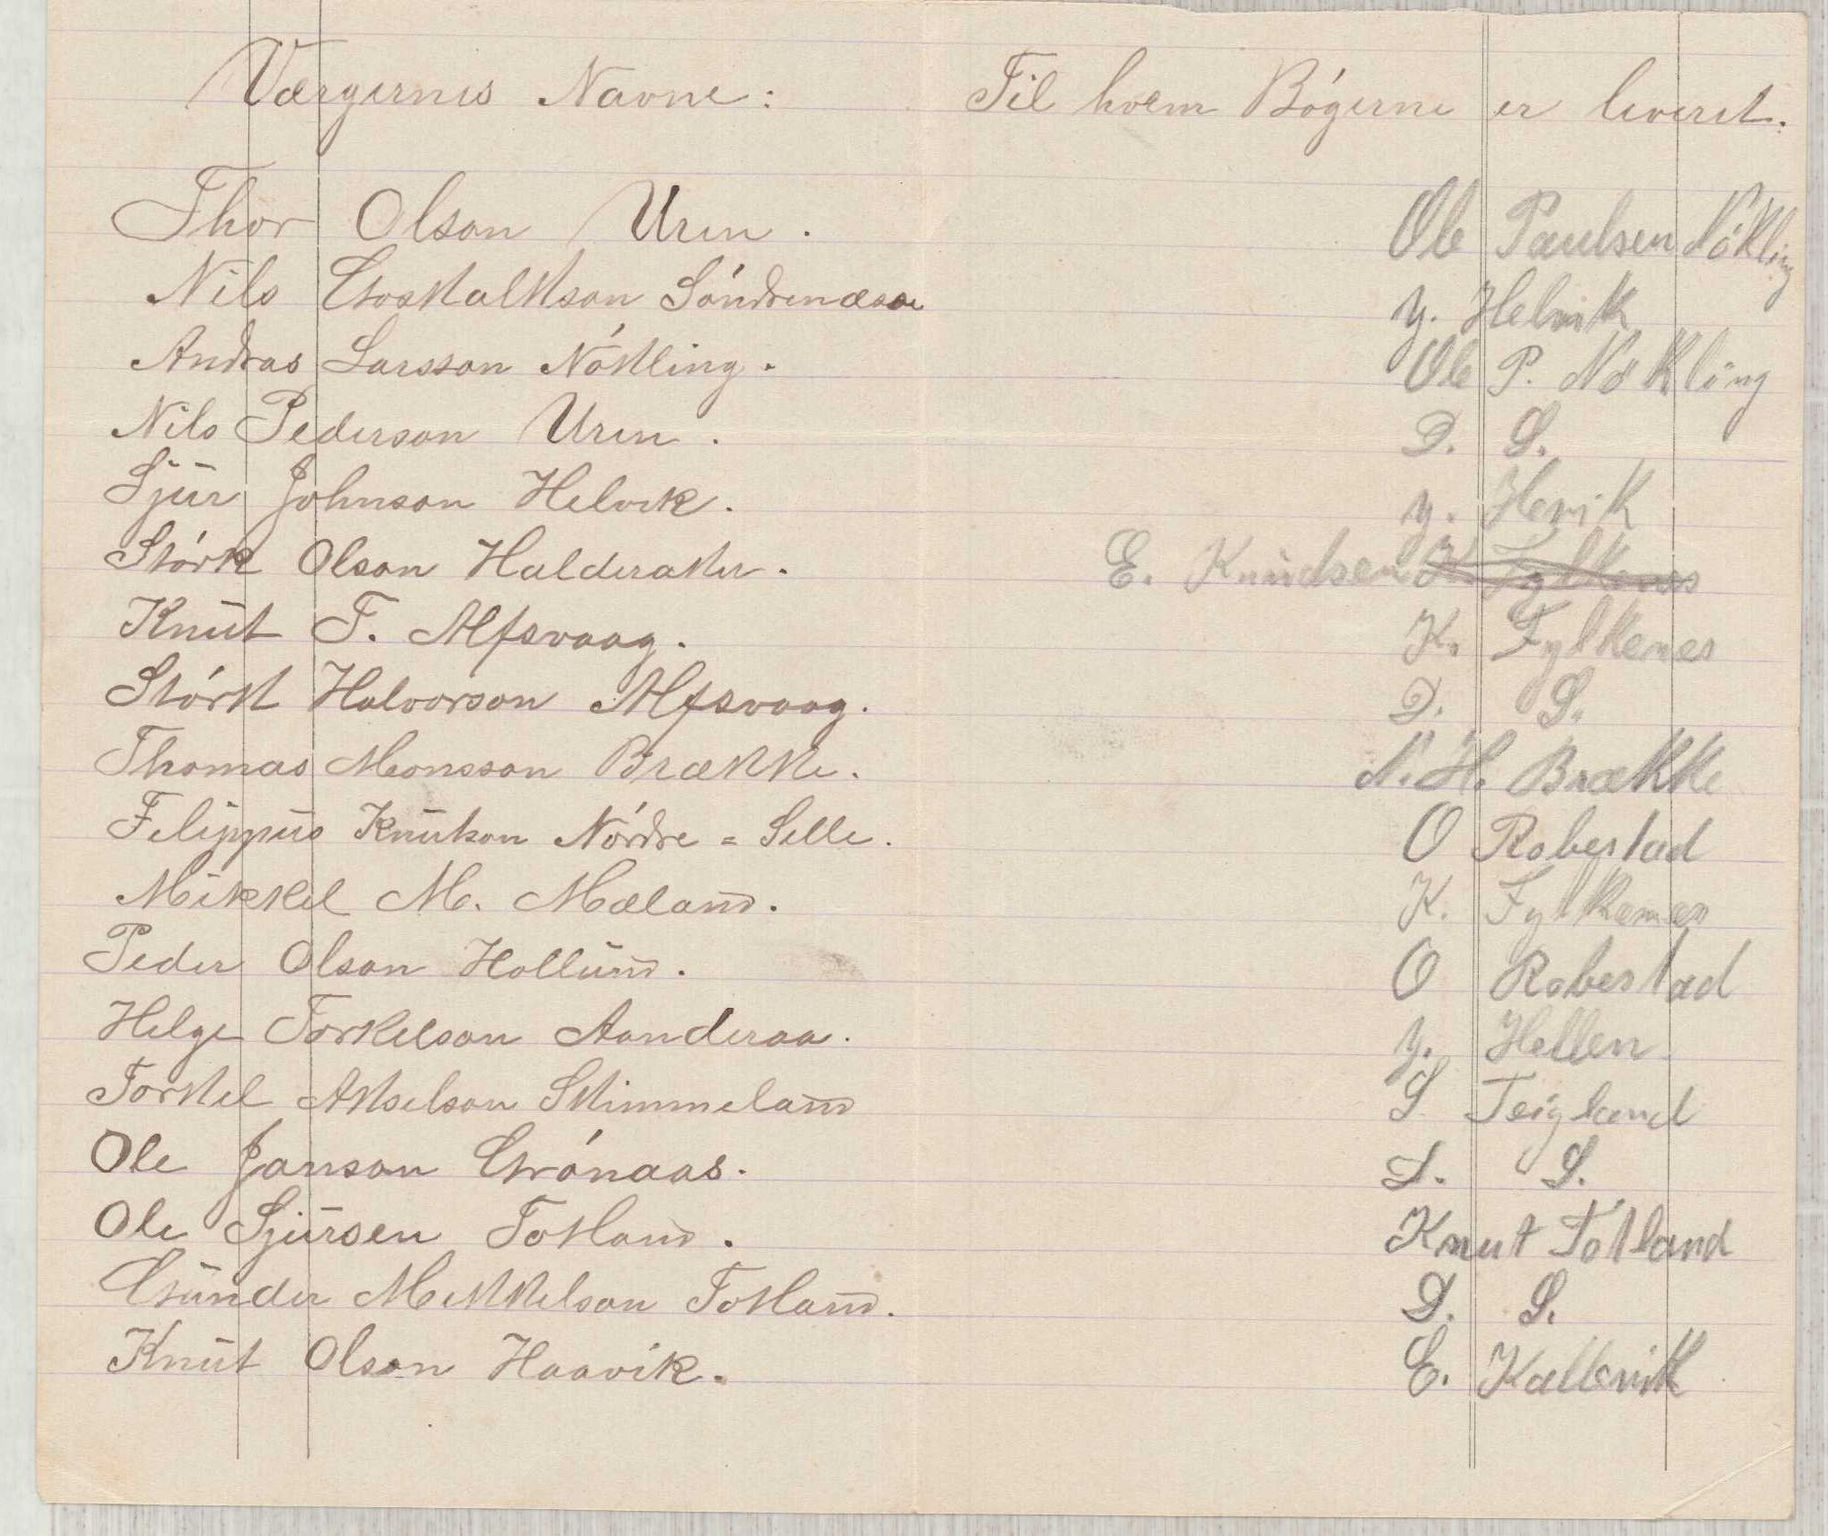 Værgernes Navne: Til hvem Bógerne er leveret.
Thor Olson Uren. Ole Paulsen Nökling
Nils Goskalkson Söndrenæsse y. Helvik
Andras Larsson Nókling. Ole P. Nökling
Nils Pederson Uren. D. S.
Sjur Johnson Helvik. y. Hevik
Störk Olson Halderaker. E. Knudsen K. Fylkenes
Knut T. Alfsvaag. K. Fylkenes
Störk Halvorson Alfsvaag. D. S.
Thomas Monsson Brække. N. H. Brække
Filippus Knutson Nórdre = Selle. O Robestad
Mikkel M. Mæland. K. Fylkenes
Peder Olson Hollund. O Robestad
Helge Torkelson Aanderaa. y. Hellen
Torkel Akselson Skimmeland S Teigland
Ole Janson Grónaas. D. S.
Ole Sjursen Totland. Knut Tótland
Gunder Mekkelson Totland. D. S.
Knut Olson Haavik. E. Kallevik